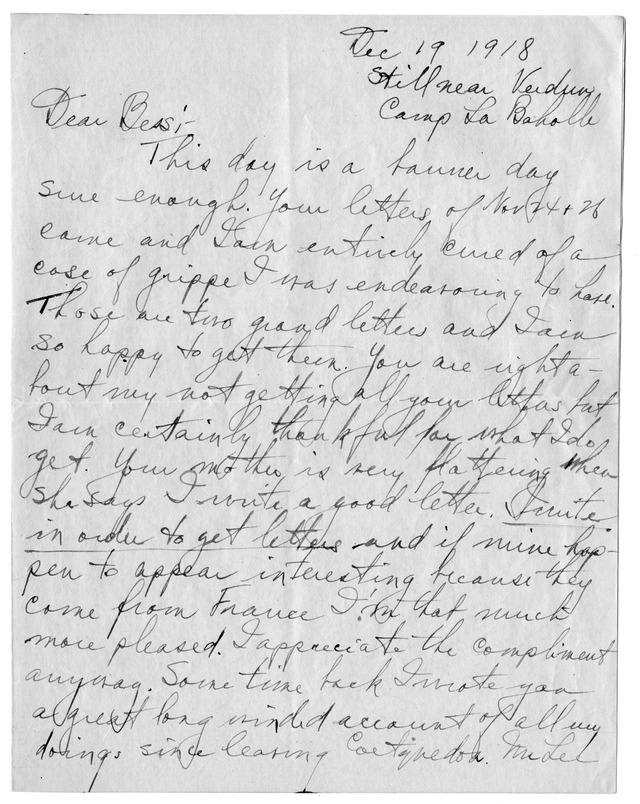 Dec 19 1918
Still near Verdun
Camp La Baholle
Dear Bess;-
This day is a banner day
sure enough. Your letters of Nov 24 + 26
came and I am entirely cured of a
case of grippe I was endeavoring to have.
Those are two grand letters and I am
so happy to get them. You are right a-
bout my not getting all your letters but
I am certainly thankful for what I do
get. Your mother is very flattering when
she says I write a good letter. I write
in order to get letters and if mine hap-
pen to appear interesting because they
come from France I'm that much
more pleased. I appreciate the compliment
anyway. Some time back I wrote you
a great long winded account of all my
doings since leaving Coetquedon.